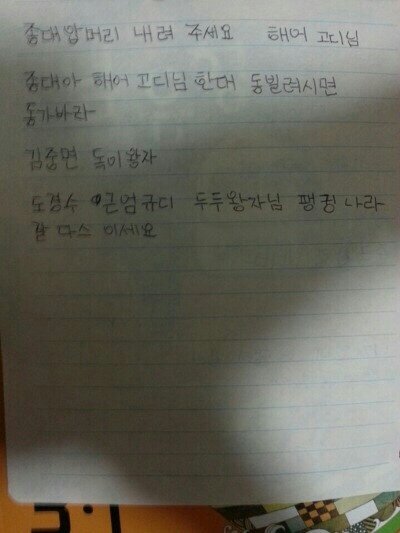 종대왕머리 내려 주세요 해어 고디님
종대아 해어 고디님 한대 동빌려시면
동가바라
김중면 독이왕자
도경수 근엄규디 두두왕자님 팽귕나라
잘 다스 이세요